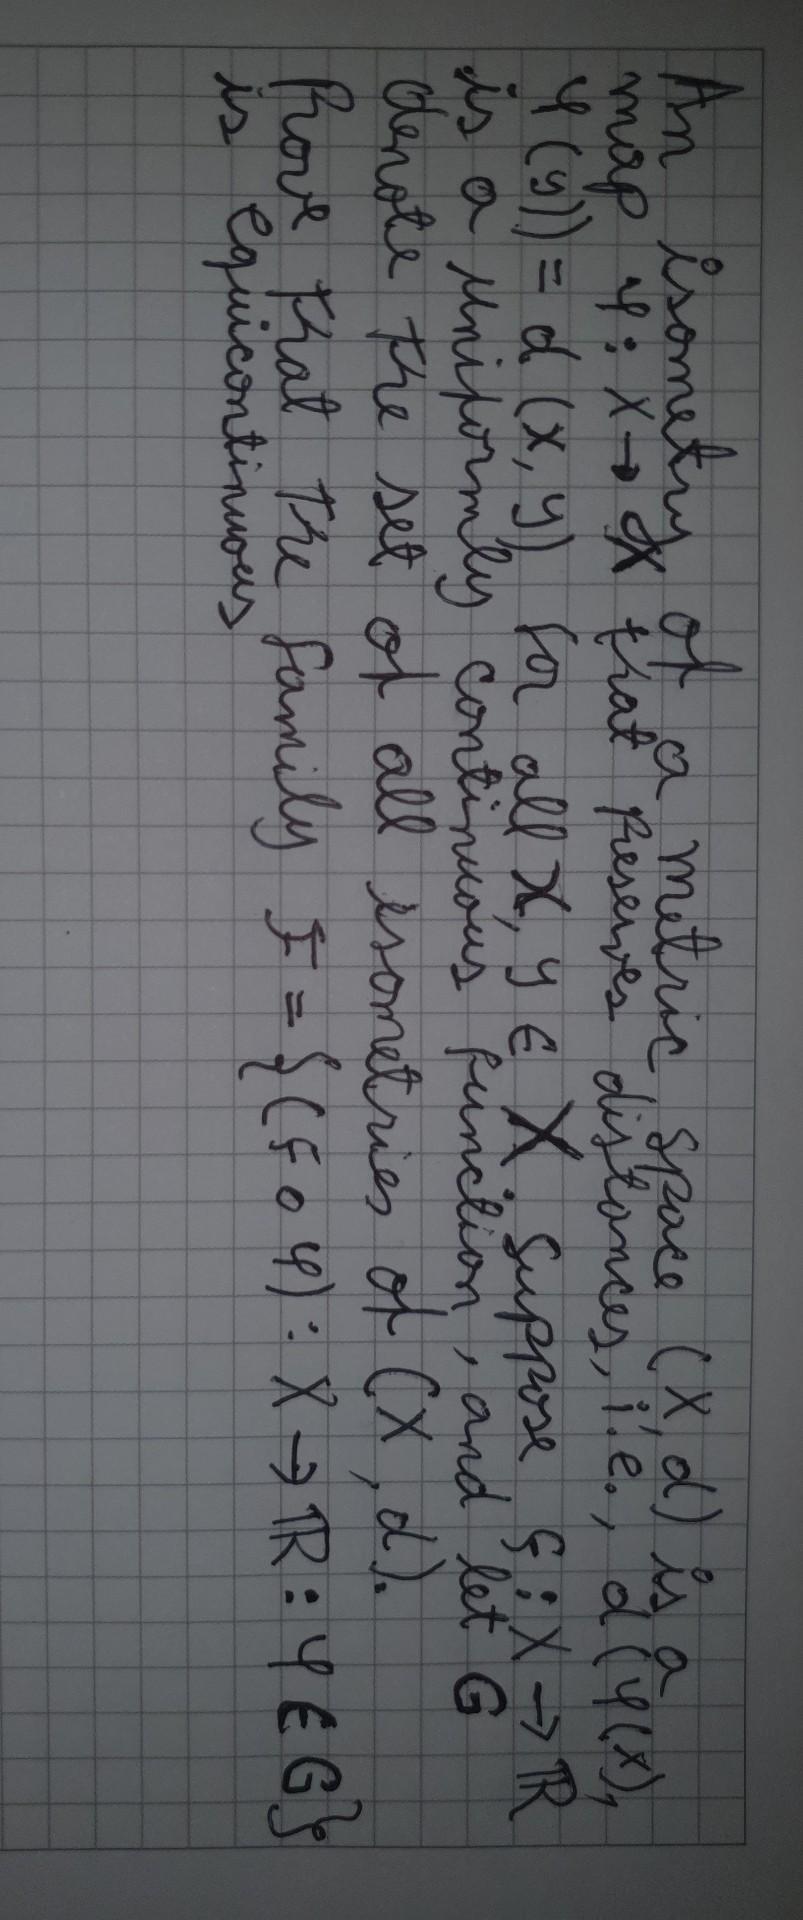 An isometry of a metric space (X, d) is a
map φ: X → X that preserves distances, i.e., d(φ(x),
φ(y)) = d(x, y) for all x, y ∈ X. Suppose f: X → ℝ
is a uniformly continuous function, and let G
denote the set of all isometries of (X, d).
Prove that the family F = {(f ∘ φ): X → ℝ : φ ∈ G}
is equicontinuous